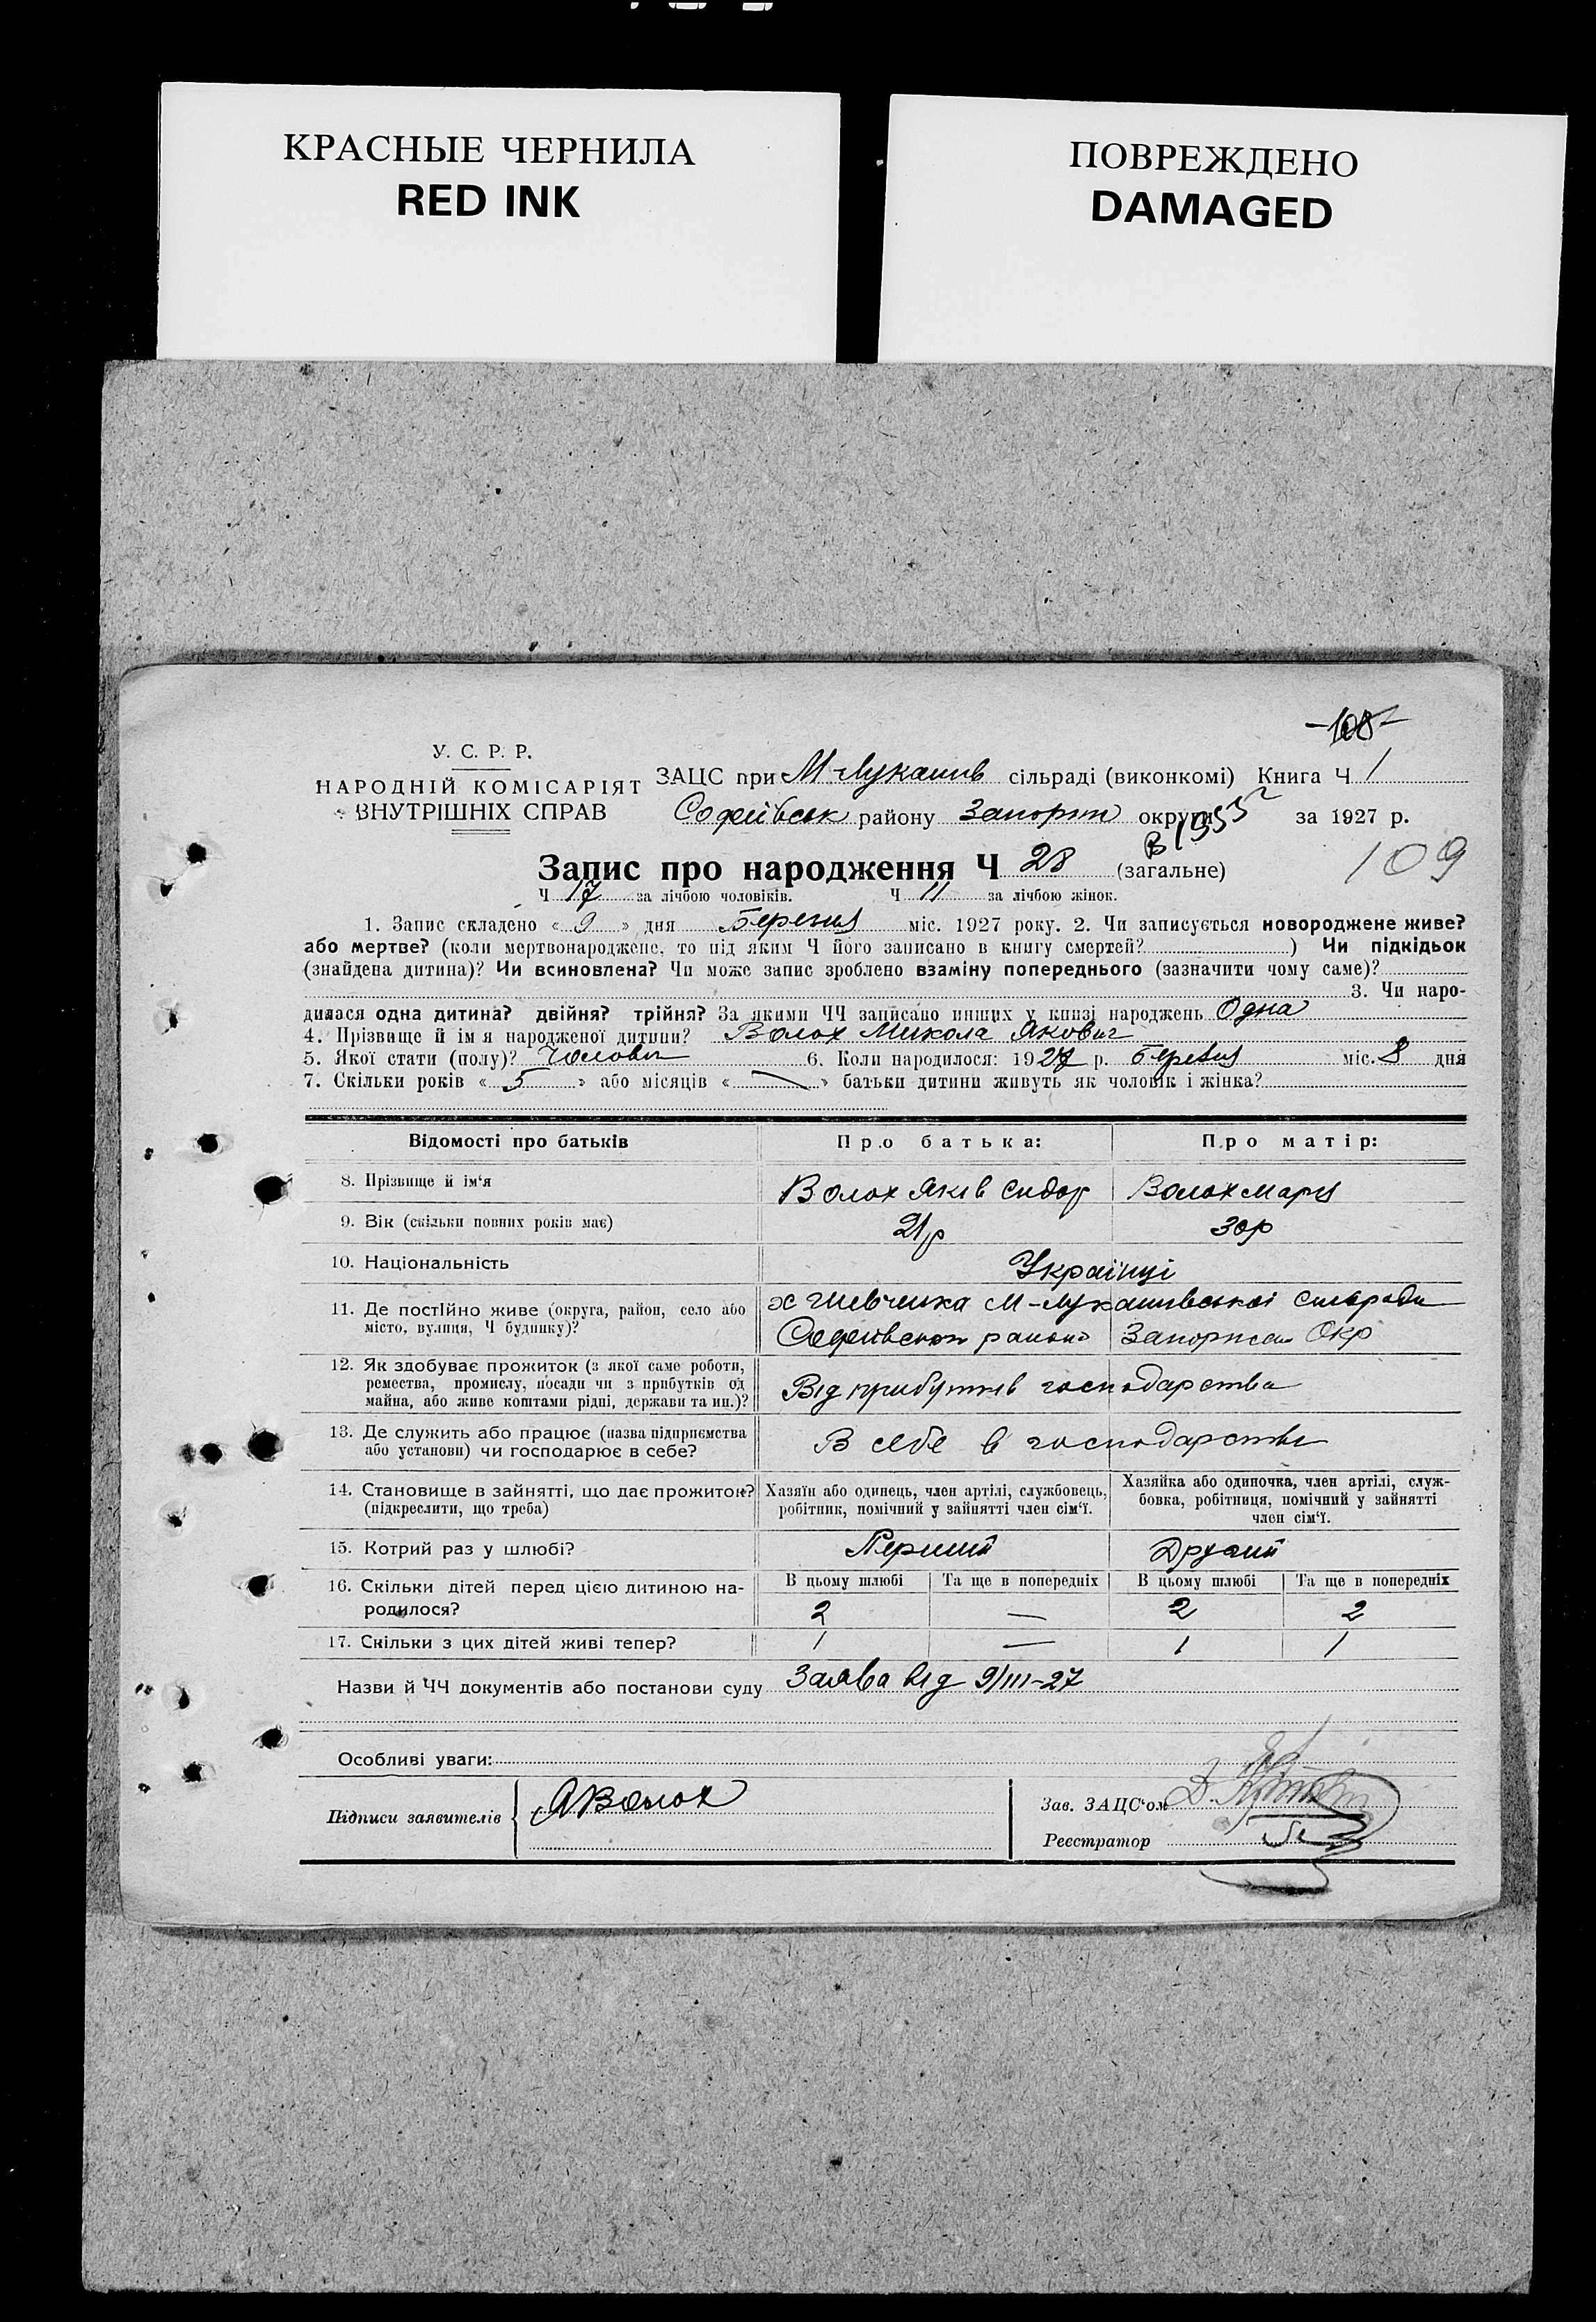 КРАСНЫЕ ЧЕРНИЛА
RED INK
ПОВРЕЖДЕНО
DAMAGED
-108-
У. С. Р. Р.
НАРОДНІЙ КОМІСАРІЯТ
ВНУТРІШНІХ СПРАВ
ЗАЦС при М-Лукашів сільраді (виконкомі) Книга Ч 1
Софеївськ району Запорж округи за 1927 р.
109
Запис про народження Ч 28 (загальне)
Ч 17 за лічбою чоловіків. Ч 11 за лічбою жінок.
1. Запис складено « 9 » дня Березня міс. 1927 року. 2. Чи записується новороджене живе?
або мертве? (коли мертвонароджене, то під яким Ч його записано в книгу смертей? ) Чи підкідьок
(знайдена дитина)? Чи всиновлена? Чи може запис зроблено взаміну попереднього (зазначити чому саме)?
3. Чи наро-
дилася одна дитина? двійня? трійня? За якими ЧЧ записано инших у книзі народжень Одна
4. Прізвище й ім я народженої дитини? Волох Микола Якович
5. Якої стати (полу)? Чоловіч 6. Коли народилося: 1927 р. Березня міс. 8 дня
7. Скільки років « 5 » або місяців « — » батьки дитини живуть як чоловік і жінка?
Відомості про батьків Про батька: Про матір:
8. Прізвище й ім‘я Волох Яків Сидор Волох Марія
9. Вік (скільки повних років має) 21р 30р
10. Національність Українці
11. Де постійно живе (округа, район, село або
місто, вулиця, Ч будинку)?
х Шевченка М-Лукашивської сільради
Софеївськ району Запоржск Окр
12. Як здобуває прожиток (з якої саме роботи,
ремества, промислу, посади чи з прибутків од
майна, або живе коштами рідні, держави та ин.)?
Від прибутків господарства
13. Де служить або працює (назва підприємства
або установи) чи господарює в себе?
В себе в господарстві
14. Становище в зайнятті, що дає прожиток?
(підкреслити, що треба)
Хазяїн або одинець, член артілі, службовець,
робітник, помічний у зайнятті член сім‘ї.
Хазяйка або одиночка, член артілі, служ-
бовка, робітниця, помічний у зайнятті
член сім‘ї.
15. Котрий раз у шлюбі? Перший Другий
16. Скільки дітей перед цією дитиною на-
родилося?
В цьому шлюбі Та ще в попередніх В цьому шлюбі Та ще в попередніх
2 — 2 2
17. Скільки з цих дітей живі тепер? 1 — 1 1
Назви й ЧЧ документів або постанови суду Заява від 9/III-27
Особливі уваги:
Підписи заявителів ЯВолох
Зав. ЗАЦС‘ом
Реєстратор